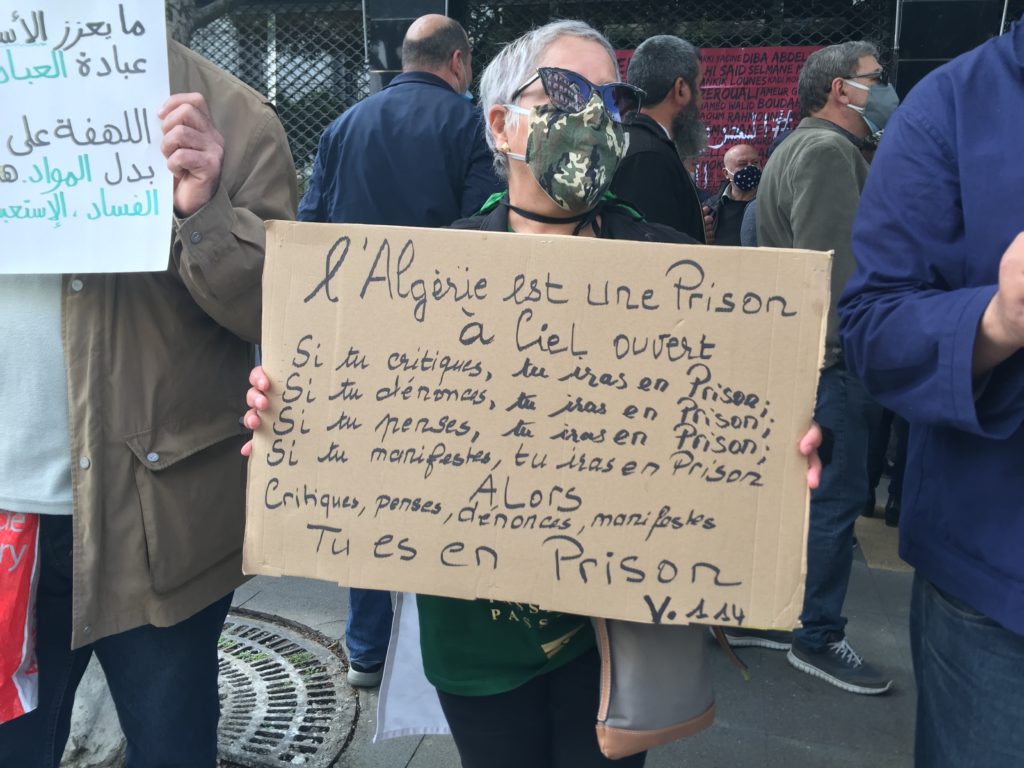 ما يعزز الأس
عبادة العباد
اللهفة على
بدل المواد ه
الفساد ، الإستعب
l'Algérie est une Prison
à Ciel ouvert
Si tu critiques, tu iras en Prison;
Si tu dénonces, tu iras en Prison;
Si tu penses, tu iras en Prison;
Si tu manifestes, tu iras en Prison
ALors
Critiques, penses, dénonces, manifestes
Tu es en Prison
V. 114
YACINE DIBA ABDEL
HI SAID SELMANE
ANKIK LOUNES KADI
ZEROUALI AMEUR
AMED WALID BOUDAH
PASS